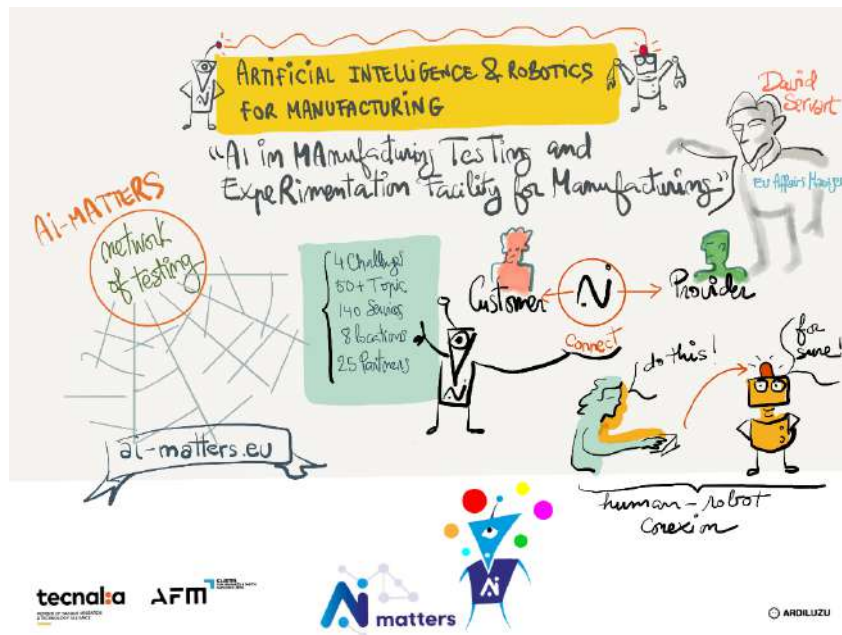 ARTIFICIAL INTELLIGENCE & ROBOTICS
FOR MANUFACTURING
"AI in MAnufacturing TesTing and
ExpeRimentation Facility for Manufacturing"
David
Servert
EU Affairs Manager
Ai-MATTERS
network
of testing
4 Challenges
50+ Topic
140 Services
8 locations
25 Partners
Customer
Ai
Provider
connect
do this!
for
sure!
ai-matters.eu
human-robot
conexion
tecnal:a
MEMBER OF BASQUE RESEARCH
& TECHNOLOGY ALLIANCE
AFM
CLUSTER
Ai matters
Ai
ARDILUZU